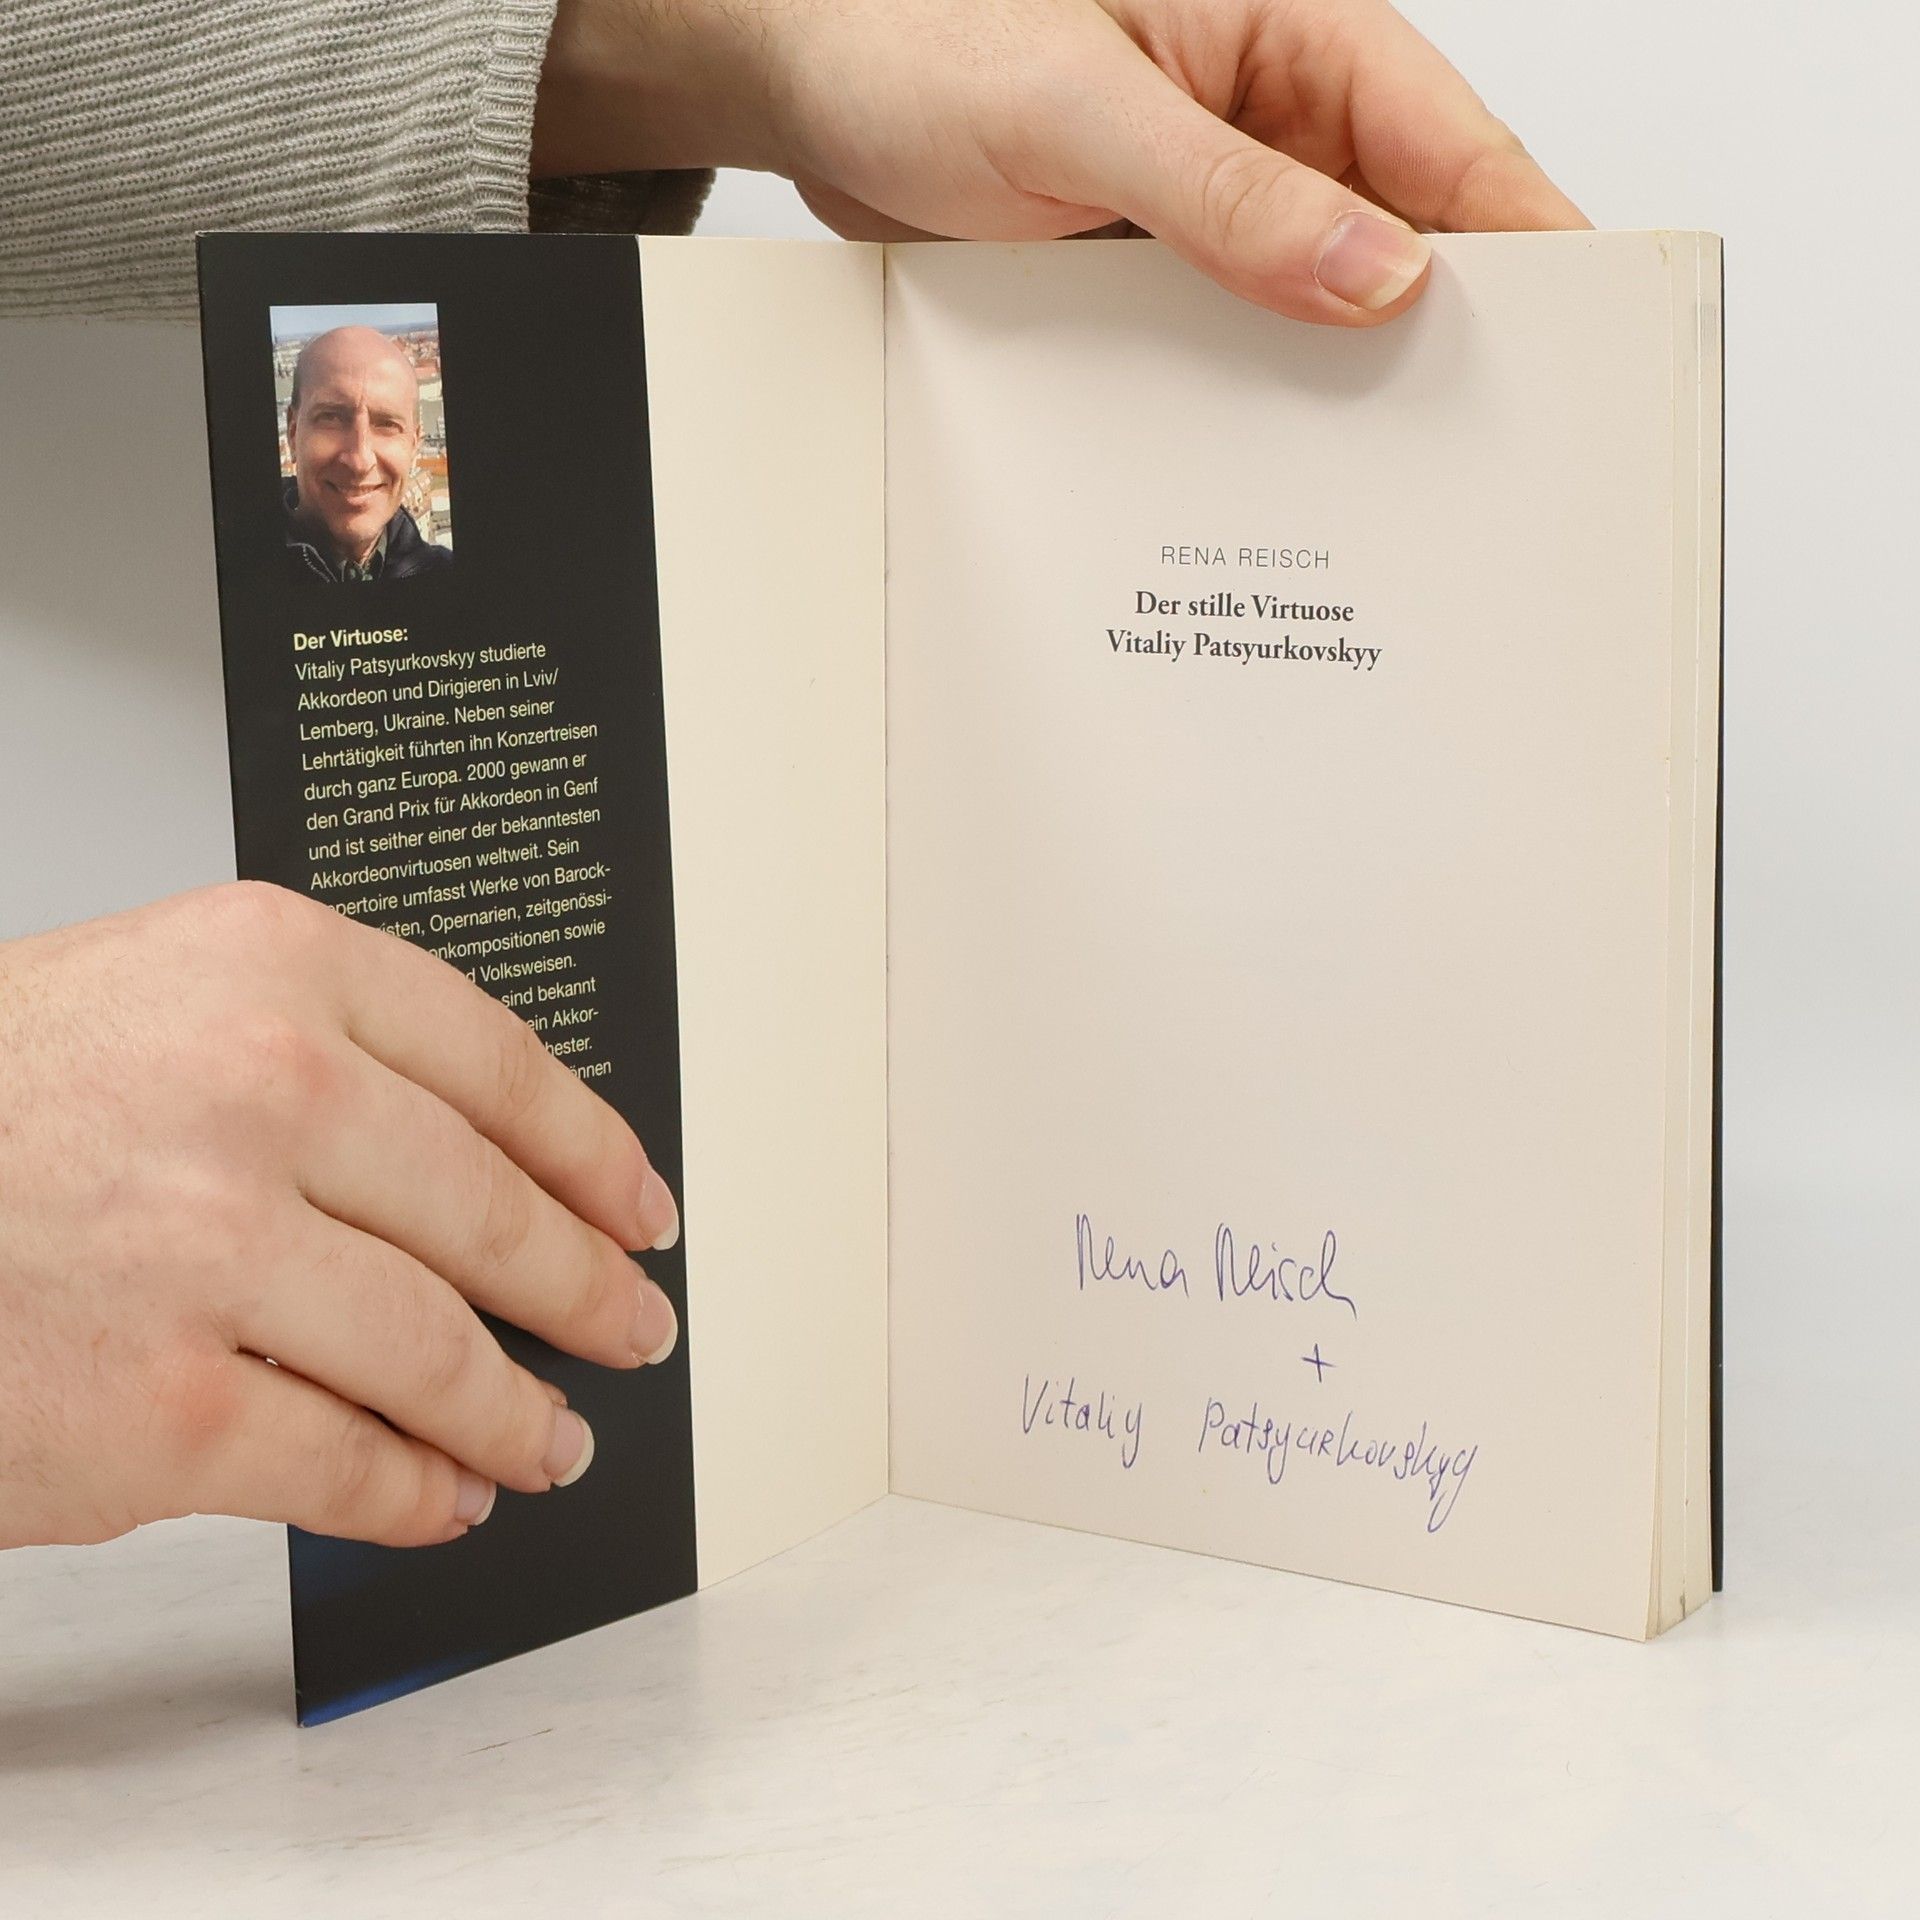 Der Virtuose:
Vitaliy Patsyurkovskyy studierte
Akkordeon und Dirigieren in Lviv/
Lemberg, Ukraine. Neben seiner
Lehrtätigkeit führten ihn Konzertreisen
durch ganz Europa. 2000 gewann er
den Grand Prix für Akkordeon in Genf
und ist seither einer der bekanntesten
Akkordeonvirtuosen weltweit. Sein
umfasst Werke von Barock-
Opernarien, zeitgenössi-
sowie
Volksweisen.
sind bekannt
ein Akkor-
RENA REISCH
Der stille Virtuose
Vitaliy Patsyurkovskyy
Rena Reisch
+
Vitaliy Patsyurkovskyy